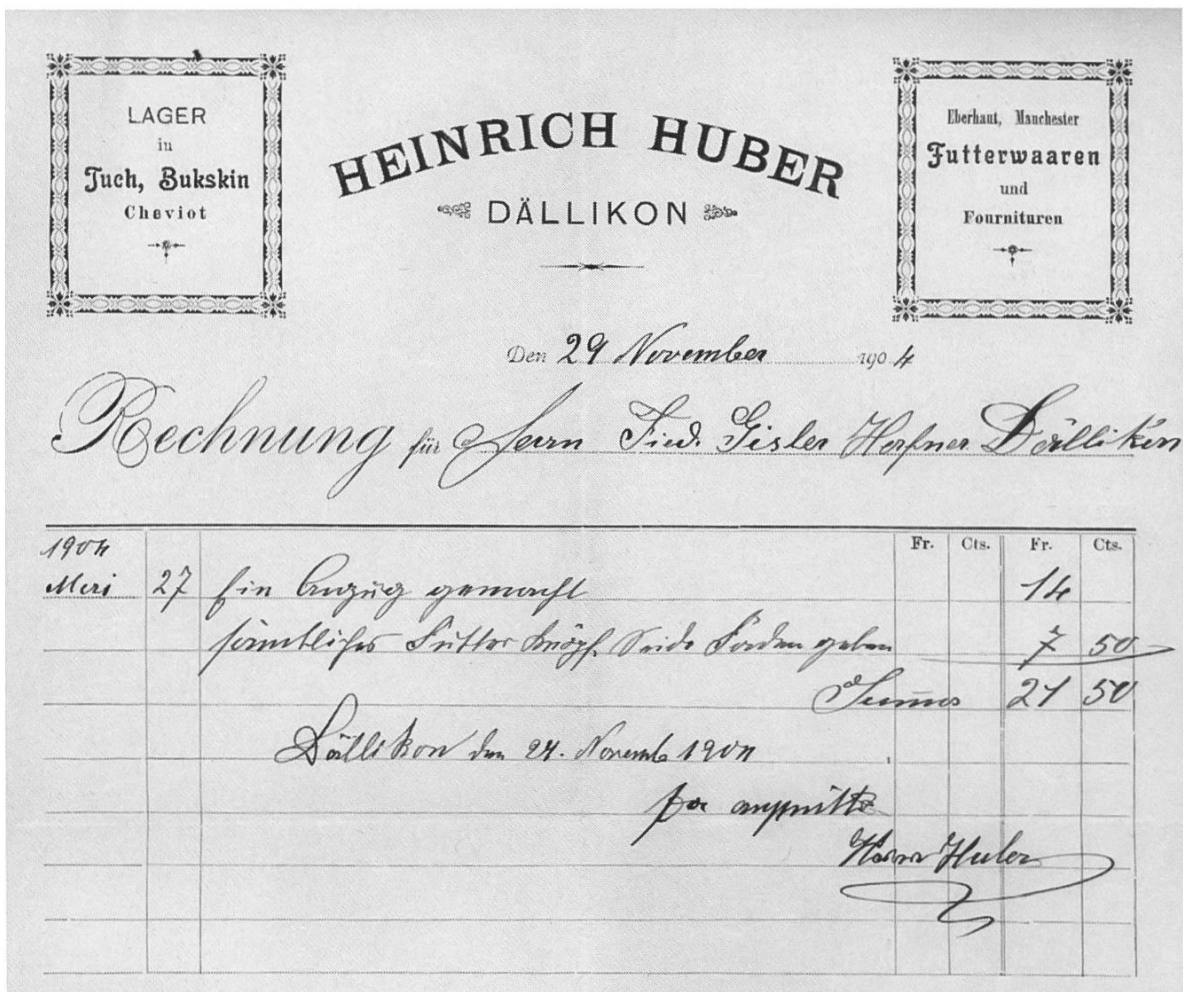 LAGER
in
Tuch, Bukskin
Cheviot
HEINRICH HUBER
DÄLLIKON
Eberhaut, Manchester
Futterwaaren
und
Fournituren
Den 29 November 1904
Rechnung für Herrn Fried. Gisler Hafner Dällikon
Fr. Cts. Fr. Cts.
1904
Mai 27 Ein Anzug gemacht 14
sämtliches Futter Knöpf. Seide Faden geben 7 50
Summa 21 50
Dällikon den 29. Novemb 1904
per
Huber